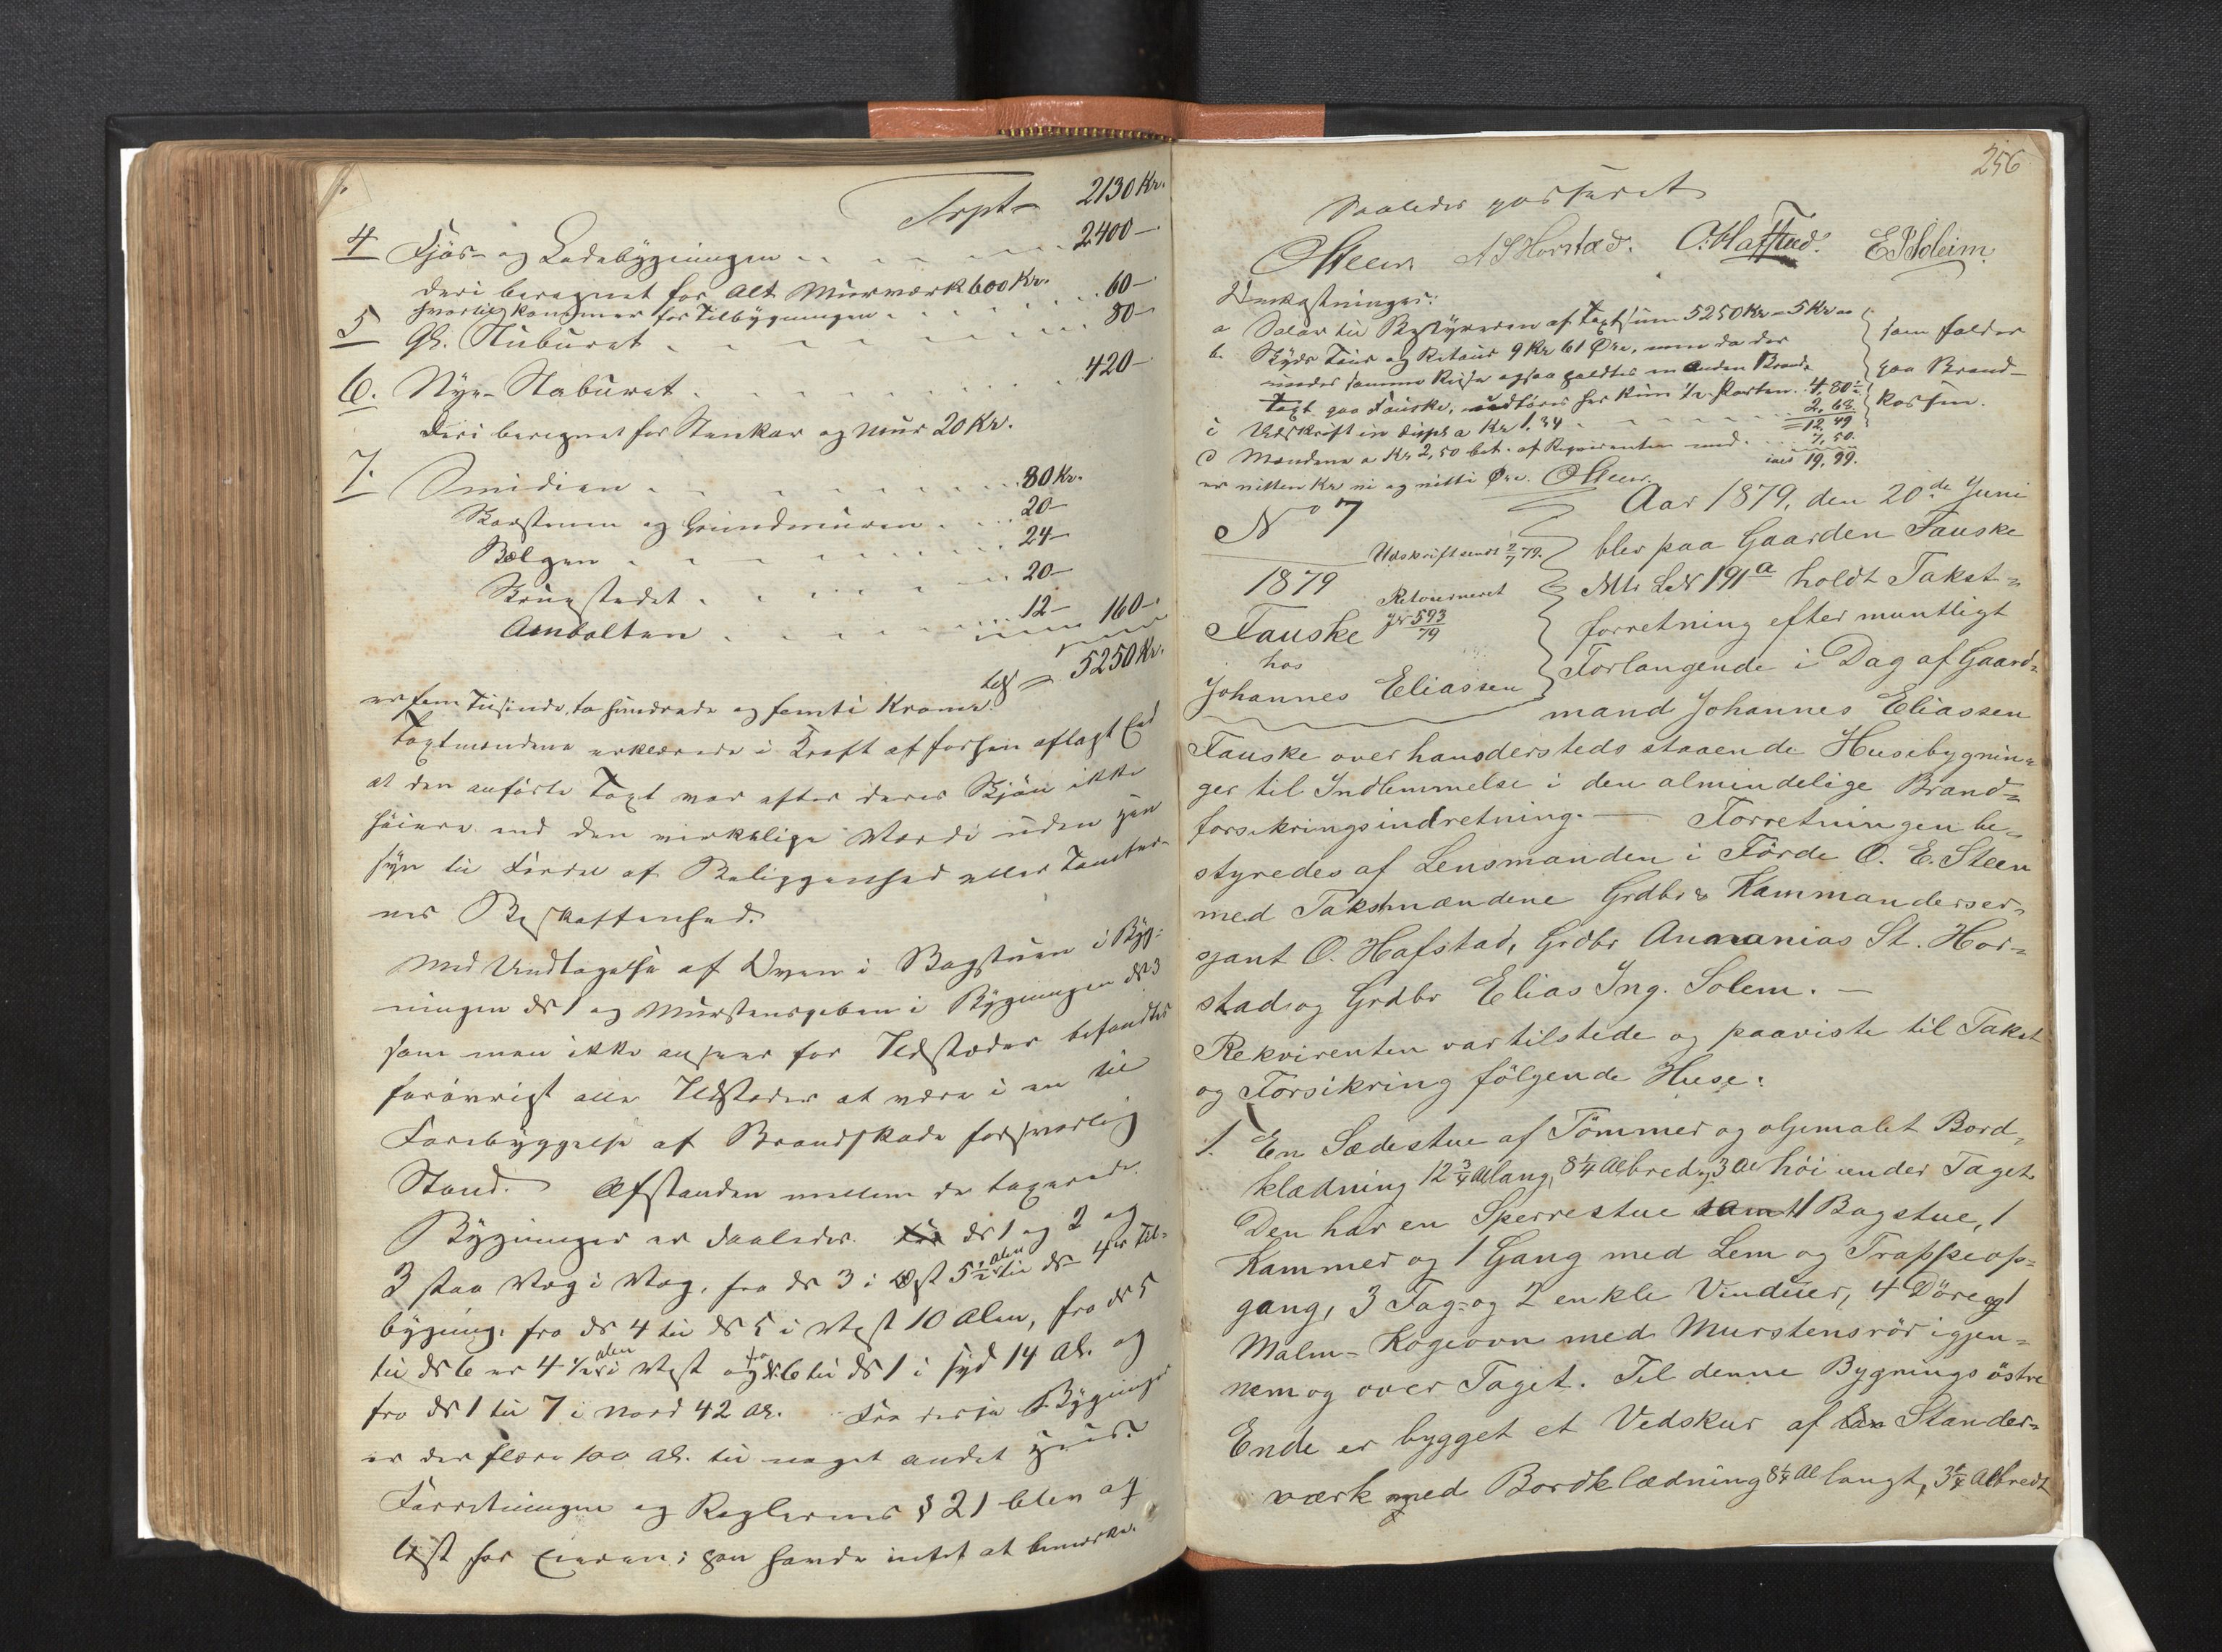 Trpt. 2130 Kr.
4 Fjös- og Ladebygningen 2400 –
deri beregnet for alt Murværk 600 Kr.
hvortil kommer for Tilbygningen 60 –
5 Gl. Stuburet 80 –
6. Nye- Staburet 420 –
deri beregnet for Stenkar og Mur 20 Kr.
7. Smidien 80 Kr.
Skorstenen og Grundmuren 20 –
Bælgen 24 –
Skruestedet 20 –
Ambolten 12 – 160 –
5250 Kr.
er fem Tusinde, to hundrede og femti Kroner.
Taxtmændene erklærede i Kraft af forhen aflagt Eed
at den anförte Taxt var efter deres Skjön ikke
höiere end den virkelige Værdi uden hen
syn til Fordel af Beliggenhed eller Tomter-
nes Beskaffenhed.
Med Undtagelse af Ovnen i Bagstuen i Byg-
ningen No 1 og Murstenspiben i Bygningen No 3
som man ikke anseer for Ildstæder befandtes
forövrigt alle Ildsteder at være i en til
Forebyggelse af Brandskade forsvarlig
Stand. Afstanden mellem de taxerede
Bygninger er saaledes. No 1 og 2 og
3 staa Væg i Væg, fra No 3 i Öst 5 1/2 alen til No 4's Til-
bygning, fra No 4 til No 5 i Vest 10 Alen, fra No 5
til No 6 er 4 1/2 alen i Vest og fra No 6 til No 1 i Syd 14 Al. og
fra No 1 til 7 i Nord 42 Al. Fra disse Bygninger
er der flere 100 Al. til noget andet Huus.
Forretningen og Reglernes § 21 blev op
læst for Eieren; han havde intet at bemærke.
256
Saaledes passeret
OSteen. A S Horstad. O. Hafstad. E I Soleim
Omkostninger:
a Salær til Bestyreren af Taxtsum 5250 Kr = 5 Kr
b. Skyds Tour og Retour 9 Kr 61 Øre, men da der
under samme Reise ogsaa holdtes en anden Brand-
taxt paa Fauske, udföres her kun 1/2 Parten. 4,80 1/2
c Udskrift in duplo a Kr 1,34 2,68
12,49
som falder
paa Brand-
kassen.
d Mændene a Kr 2,50 bet. af Rqvirenten med 7,50.
19,99.
er nitten Kr ni og nitti Øre. OSteen.
No 7
1879
Fauske
hos
Johannes Eliassen
Udskrift sendt 2/7 79.
Retourneret
Jr 593/79
Aar 1879, den 20de Juni
blev paa Gaarden Fauske
Mtr. L. No 191a holdt Takst-
forretning efter muntligt
Forlangende i Dag af Gaard-
mand Johannes Eliassen
Fauske over hansdersteds staaende Husebygnin-
ger til Indlemmelse i den almindelige Brand-
forsikringsindretning. — Forretningen be-
styredes af Lensmanden i Förde O. E. Steen
med Takstmændene Grdbr & Kammanderser-
sjant O. Hafstad, Grdbr Annanias St. Hor-
stad og Grdbr Elias Ing. Solem. —
Rekvirenten var tilstede og paaviste til Takst
og Forsikring fölgende Huse:
1. En Sædestue af Tömmer og oljemalet Bord-
klædning 12 3/4 Al lang, 8 1/4 Al bred og 3 Al höi under Taget.
Den har en Sperrestue samt 1 Bagstue, 1
Kammer og 1 Gang med Lem og Trappeop-
gang, 3 Fag- og 2 enkle Vinduer, 4 Döre og 1
Malm- Kogeovn med Murstensrör igjen-
nem og over Taget. Til denne Bygnings östre
Ende er bygget et Vedskur af Stander-
værk med Bordklædning 8 1/4 Al langt, 3 1/4 Al bredt